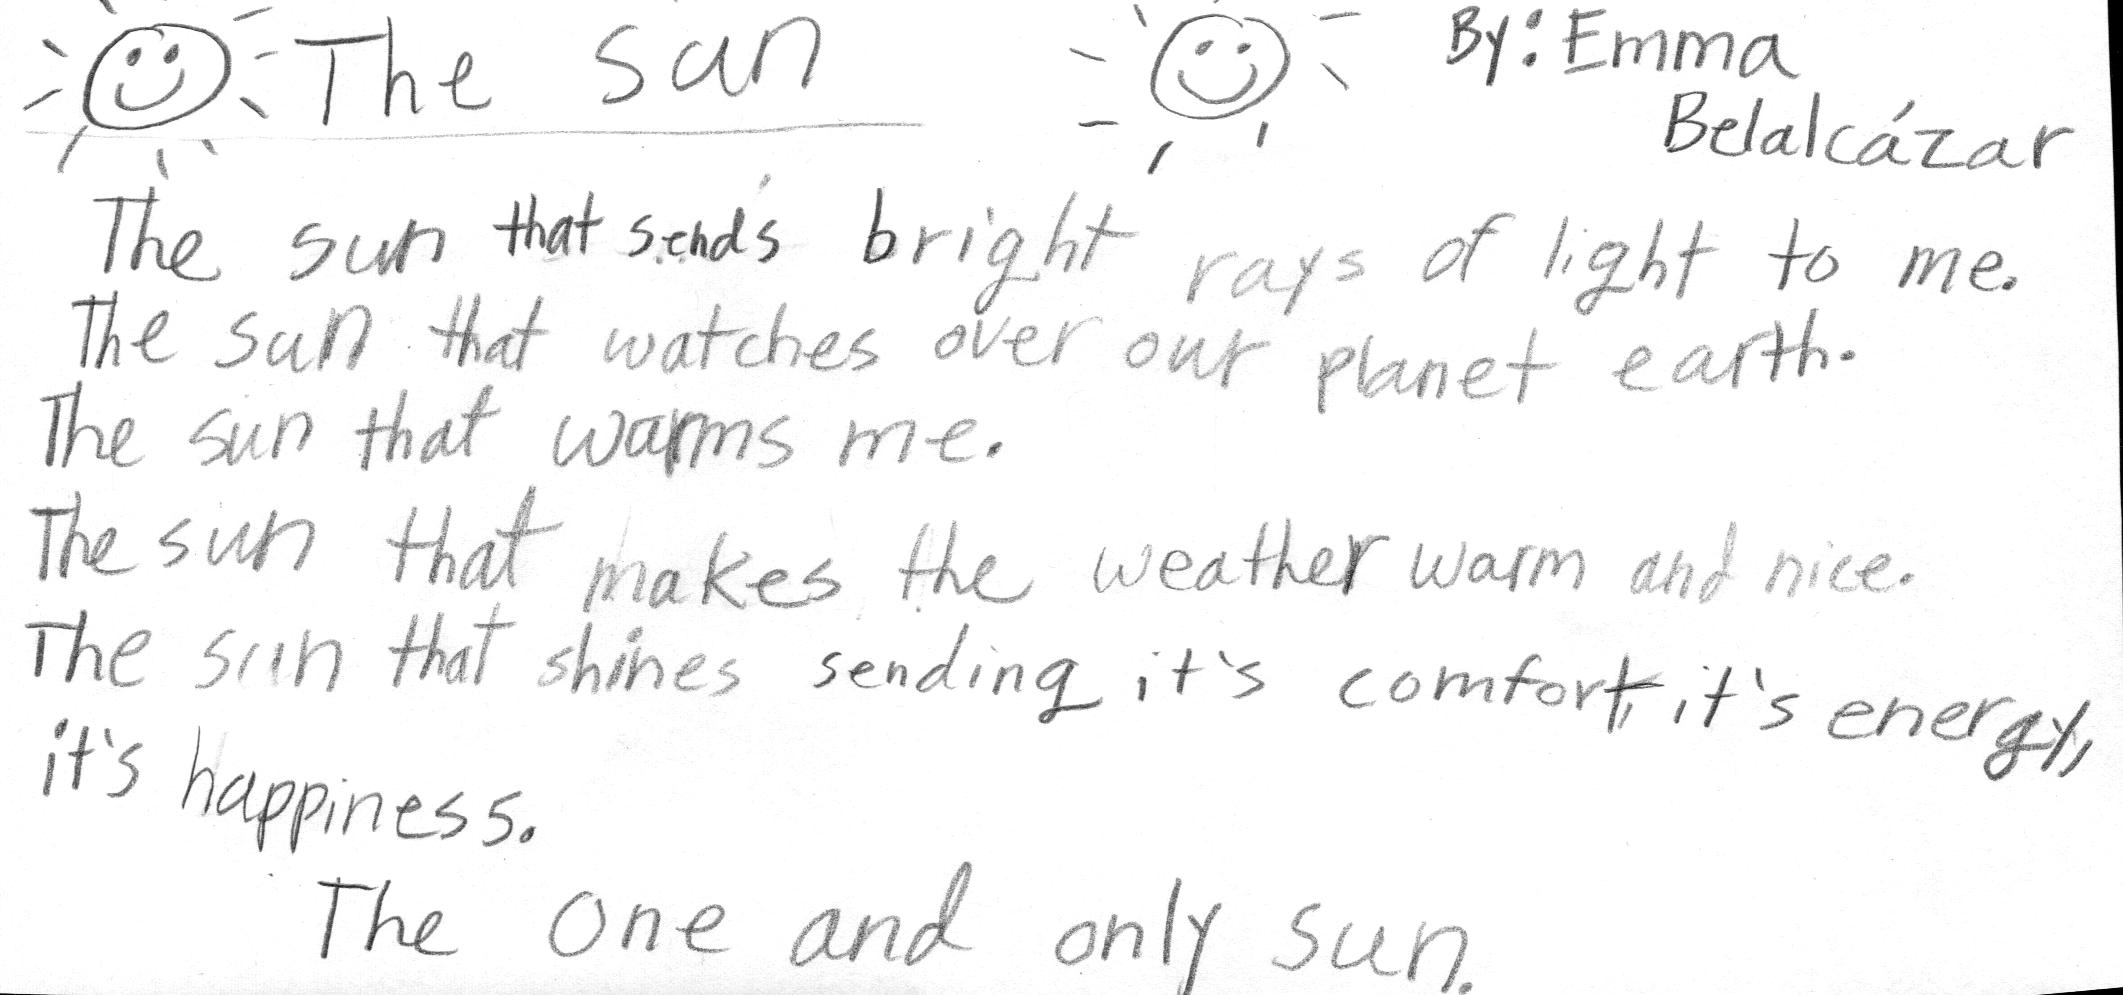 The sun
By: Emma
Belalcázar
The sun that sends bright rays of light to me.
The sun that watches over our planet earth.
The sun that warms me.
The sun that makes the weather warm and nice.
The sun that shines sending it's comfort, it's energy,
it's happiness.
The one and only sun.